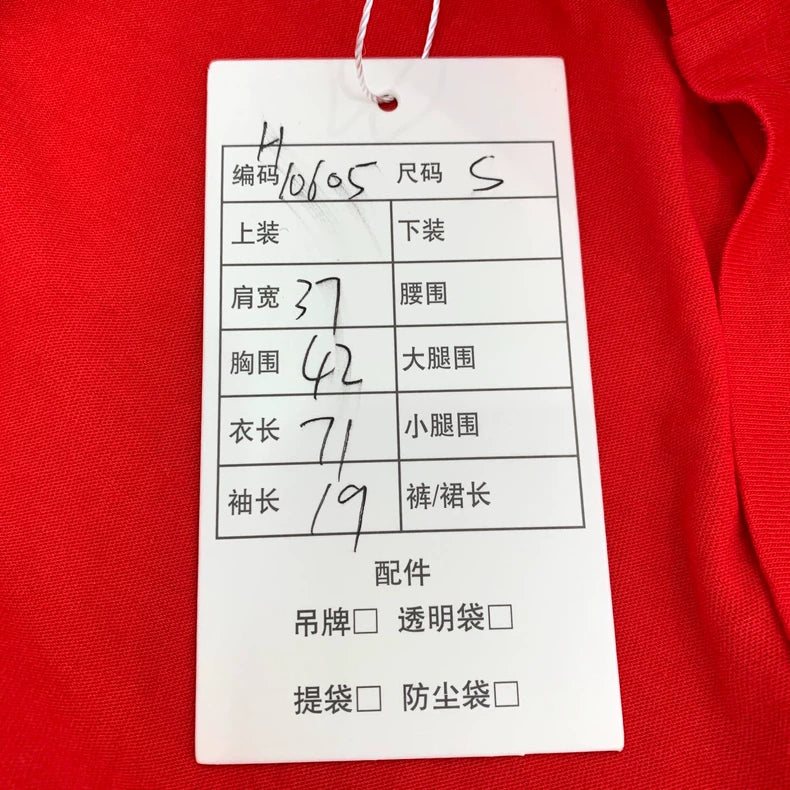 编码 H10605 尺码 S
上装 下装
肩宽 37 腰围
胸围 42 大腿围
衣长 71 小腿围
袖长 19 裤/裙长
配件
吊牌□ 透明袋□
提袋□ 防尘袋□